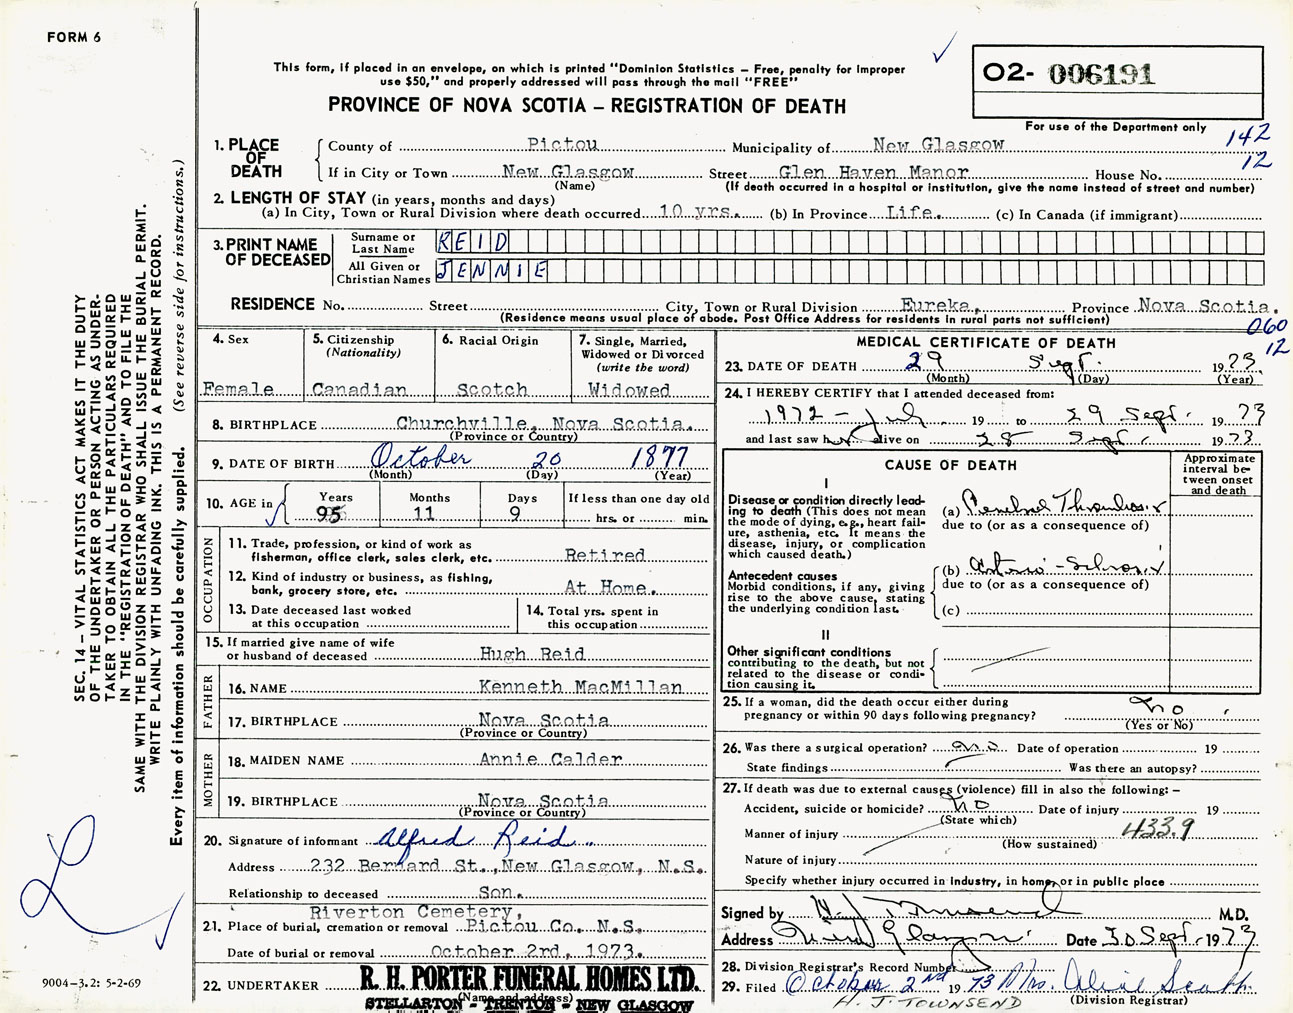 FORM 6
This form, if placed in an envelope, on which is printed "Dominion Statistics – Free, penalty for improper
use $50," and properly addressed will pass through the mail "FREE"
PROVINCE OF NOVA SCOTIA – REGISTRATION OF DEATH
02- 006191
For use of the Department only
142
12
1. PLACE OF DEATH
County of Pictou Municipality of New Glasgow
If in City or Town New Glasgow Street Glen Haven Manor House No.
(Name) (If death occurred in a hospital or institution, give the name instead of street and number)
2. LENGTH OF STAY (in years, months and days)
(a) In City, Town or Rural Division where death occurred 10 yrs. (b) In Province Life. (c) In Canada (if immigrant)
3. PRINT NAME OF DECEASED
Surname or Last Name REID
All Given or Christian Names JENNIE
RESIDENCE No. Street City, Town or Rural Division Eureka, Province Nova Scotia.
(Residence means usual place of abode. Post Office Address for residents in rural parts not sufficient)
060
12
4. Sex
Female
5. Citizenship
(Nationality)
Canadian
6. Racial Origin
Scotch
7. Single, Married,
Widowed or Divorced
(write the word)
Widowed
8. BIRTHPLACE Churchville, Nova Scotia.
(Province or Country)
9. DATE OF BIRTH October 20 1877
(Month) (Day) (Year)
10. AGE in Years Months Days If less than one day old
95 11 9 hrs. or min.
OCCUPATION
11. Trade, profession, or kind of work as
fisherman, office clerk, sales clerk, etc. Retired
12. Kind of industry or business, as fishing,
bank, grocery store, etc. At Home.
13. Date deceased last worked
at this occupation
14. Total yrs. spent in
this occupation
15. If married give name of wife
or husband of deceased Hugh Reid
FATHER
16. NAME Kenneth MacMillan
17. BIRTHPLACE Nova Scotia
(Province or Country)
MOTHER
18. MAIDEN NAME Annie Calder
19. BIRTHPLACE Nova Scotia
(Province or Country)
20. Signature of informant Alfred Reid
Address 232 Bernard St., New Glasgow, N.S.
Relationship to deceased Son.
Riverton Cemetery,
21. Place of burial, cremation or removal Pictou Co. N.S.
Date of burial or removal October 2rd, 1973.
22. UNDERTAKER R. H. PORTER FUNERAL HOMES LTD.
(Name and address)
STELLARTON - TRENTON - NEW GLASGOW
MEDICAL CERTIFICATE OF DEATH
23. DATE OF DEATH 29 Sept. 1973
(Month) (Day) (Year)
24. I HEREBY CERTIFY that I attended deceased from:
1972 - July 19 to 29 Sept. 1973
and last saw her alive on 28 Sept. 1973
CAUSE OF DEATH
Approximate
interval be-
tween onset
and death
I
Disease or condition directly lead-
ing to death (This does not mean
the mode of dying, e.g., heart fail-
ure, asthenia, etc. It means the
disease, injury, or complication
which caused death.)
(a) Cerebral Thrombosis
due to (or as a consequence of)
Antecedent causes
Morbid conditions, if any, giving
rise to the above cause, stating
the underlying condition last.
(b) Arterio-Sclerosis
due to (or as a consequence of)
(c)
II
Other significant conditions
contributing to the death, but not
related to the disease or condi-
tion causing it.
25. If a woman, did the death occur either during
pregnancy or within 90 days following pregnancy? no
(Yes or No)
26. Was there a surgical operation? Date of operation 19
State findings Was there an autopsy?
27. If death was due to external causes (violence) fill in also the following: –
Accident, suicide or homicide? no Date of injury 19
(State which)
433.9
Manner of injury
(How sustained)
Nature of injury
Specify whether injury occurred in industry, in home, or in public place
Signed by H J Townsend M.D.
Address New Glasgow Date 30 Sept. 1973
28. Division Registrar's Record Number
29. Filed October 2nd 1973 Mrs.
(Division Registrar)
H. J. TOWNSEND
SEC. 14 – VITAL STATISTICS ACT MAKES IT THE DUTY
OF THE UNDERTAKER OR PERSON ACTING AS UNDER-
TAKER TO OBTAIN ALL THE PARTICULARS REQUIRED
IN THE "REGISTRATION OF DEATH" AND TO FILE THE
SAME WITH THE DIVISION REGISTRAR WHO SHALL ISSUE THE BURIAL PERMIT.
WRITE PLAINLY WITH UNFADING INK. THIS IS A PERMANENT RECORD.
Every item of information should be carefully supplied. (See reverse side for instructions.)
9004–3.2: 5-2-69